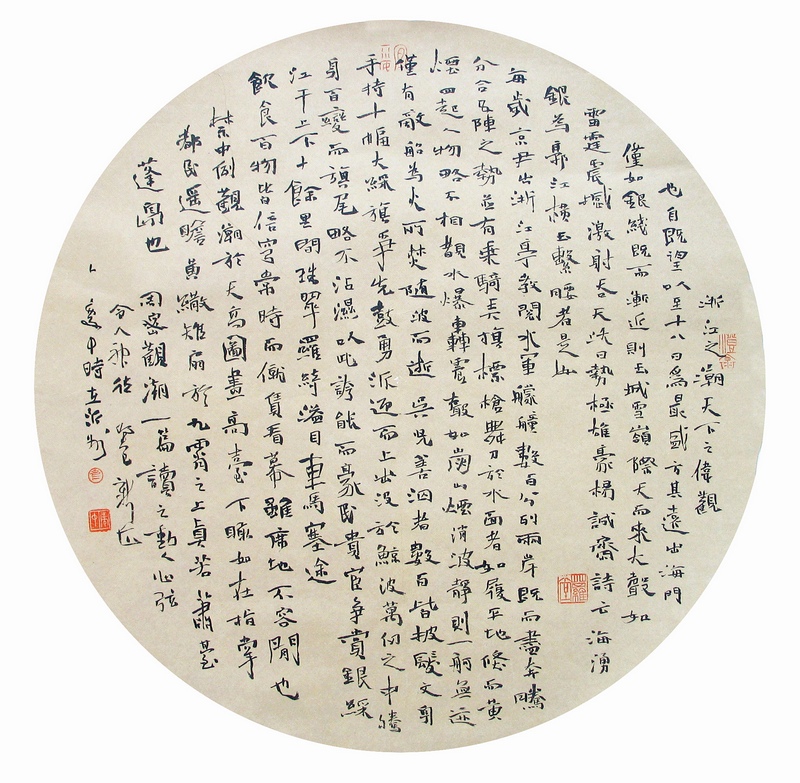 浙江之潮天下之偉觀
也自既望以至十八日為最盛方其遠出海門
僅如銀綫既而漸近則玉城雪嶺際天而來大聲如
雷霆震撼激射吞天沃日勢極雄豪楊誠齋詩云海湧
銀為郭江橫玉繫腰者是也
每歲京尹出浙江亭教閱水軍艨艟數百分列兩岸既而盡奔騰
分合五陣之勢並有乘騎弄旗標槍舞刀於水面者如履平地倏而黃
煙四起人物略不相覩水爆轟震聲如崩山煙消波靜則一舸無迹
僅有敵船為火所焚隨波而逝吳兒善泅者數百皆披髮文身
手持十幅大綵旗爭先鼓勇泝迎而上出沒於鯨波萬仞之中騰
身百變而旗尾略不沾濕以此誇能而豪民貴宦爭賞銀綵
江干上下十餘里間珠翠羅綺溢目車馬塞途
飲食百物皆倍穹常時而僦賃看幕雖席地不容閒也
禁中例觀潮於天高圖畫高臺下瞰如在指掌
都民遥瞻黃繖雉扇於九霄之上真若簫臺
蓬島也
周密觀潮一篇讀之動人心弦
令人神往 癸巳
時在